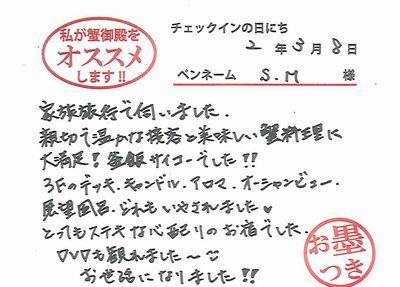 私が蟹御殿を
オススメ
します!!
チェックインの日にち
2年3月8日
ペンネーム S.M 様
家族旅行で伺いました.
親切で温かな接客と美味しい蟹料理に
大満足!釜飯サイコーでした!!
3Fのデッキ.キャンドル.アロマ.オーシャンビュー.
展望風呂.どれもいやされました♥
とってもステキな心配りのお宿でした.
DVDも観れました〜
お世話になりました!!
お墨つき